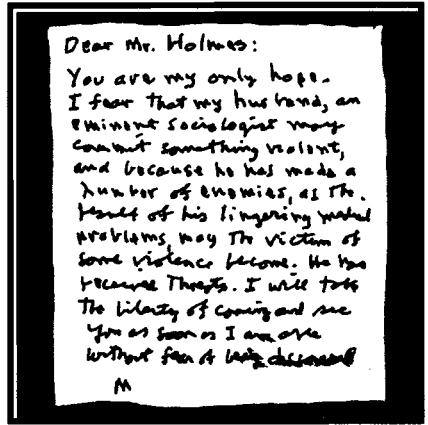 Dear Mr. Holmes:
You are my only hope.
I fear that my husband, an
eminent sociologist may
commit something violent,
and because he has made a
number of enemies, as the
result of his lingering mental
problems, may the victim of
some violence become. He has
received Threats. I will take
The liberty of coming and see
you as soon as I am able
without fear of being discovered
M